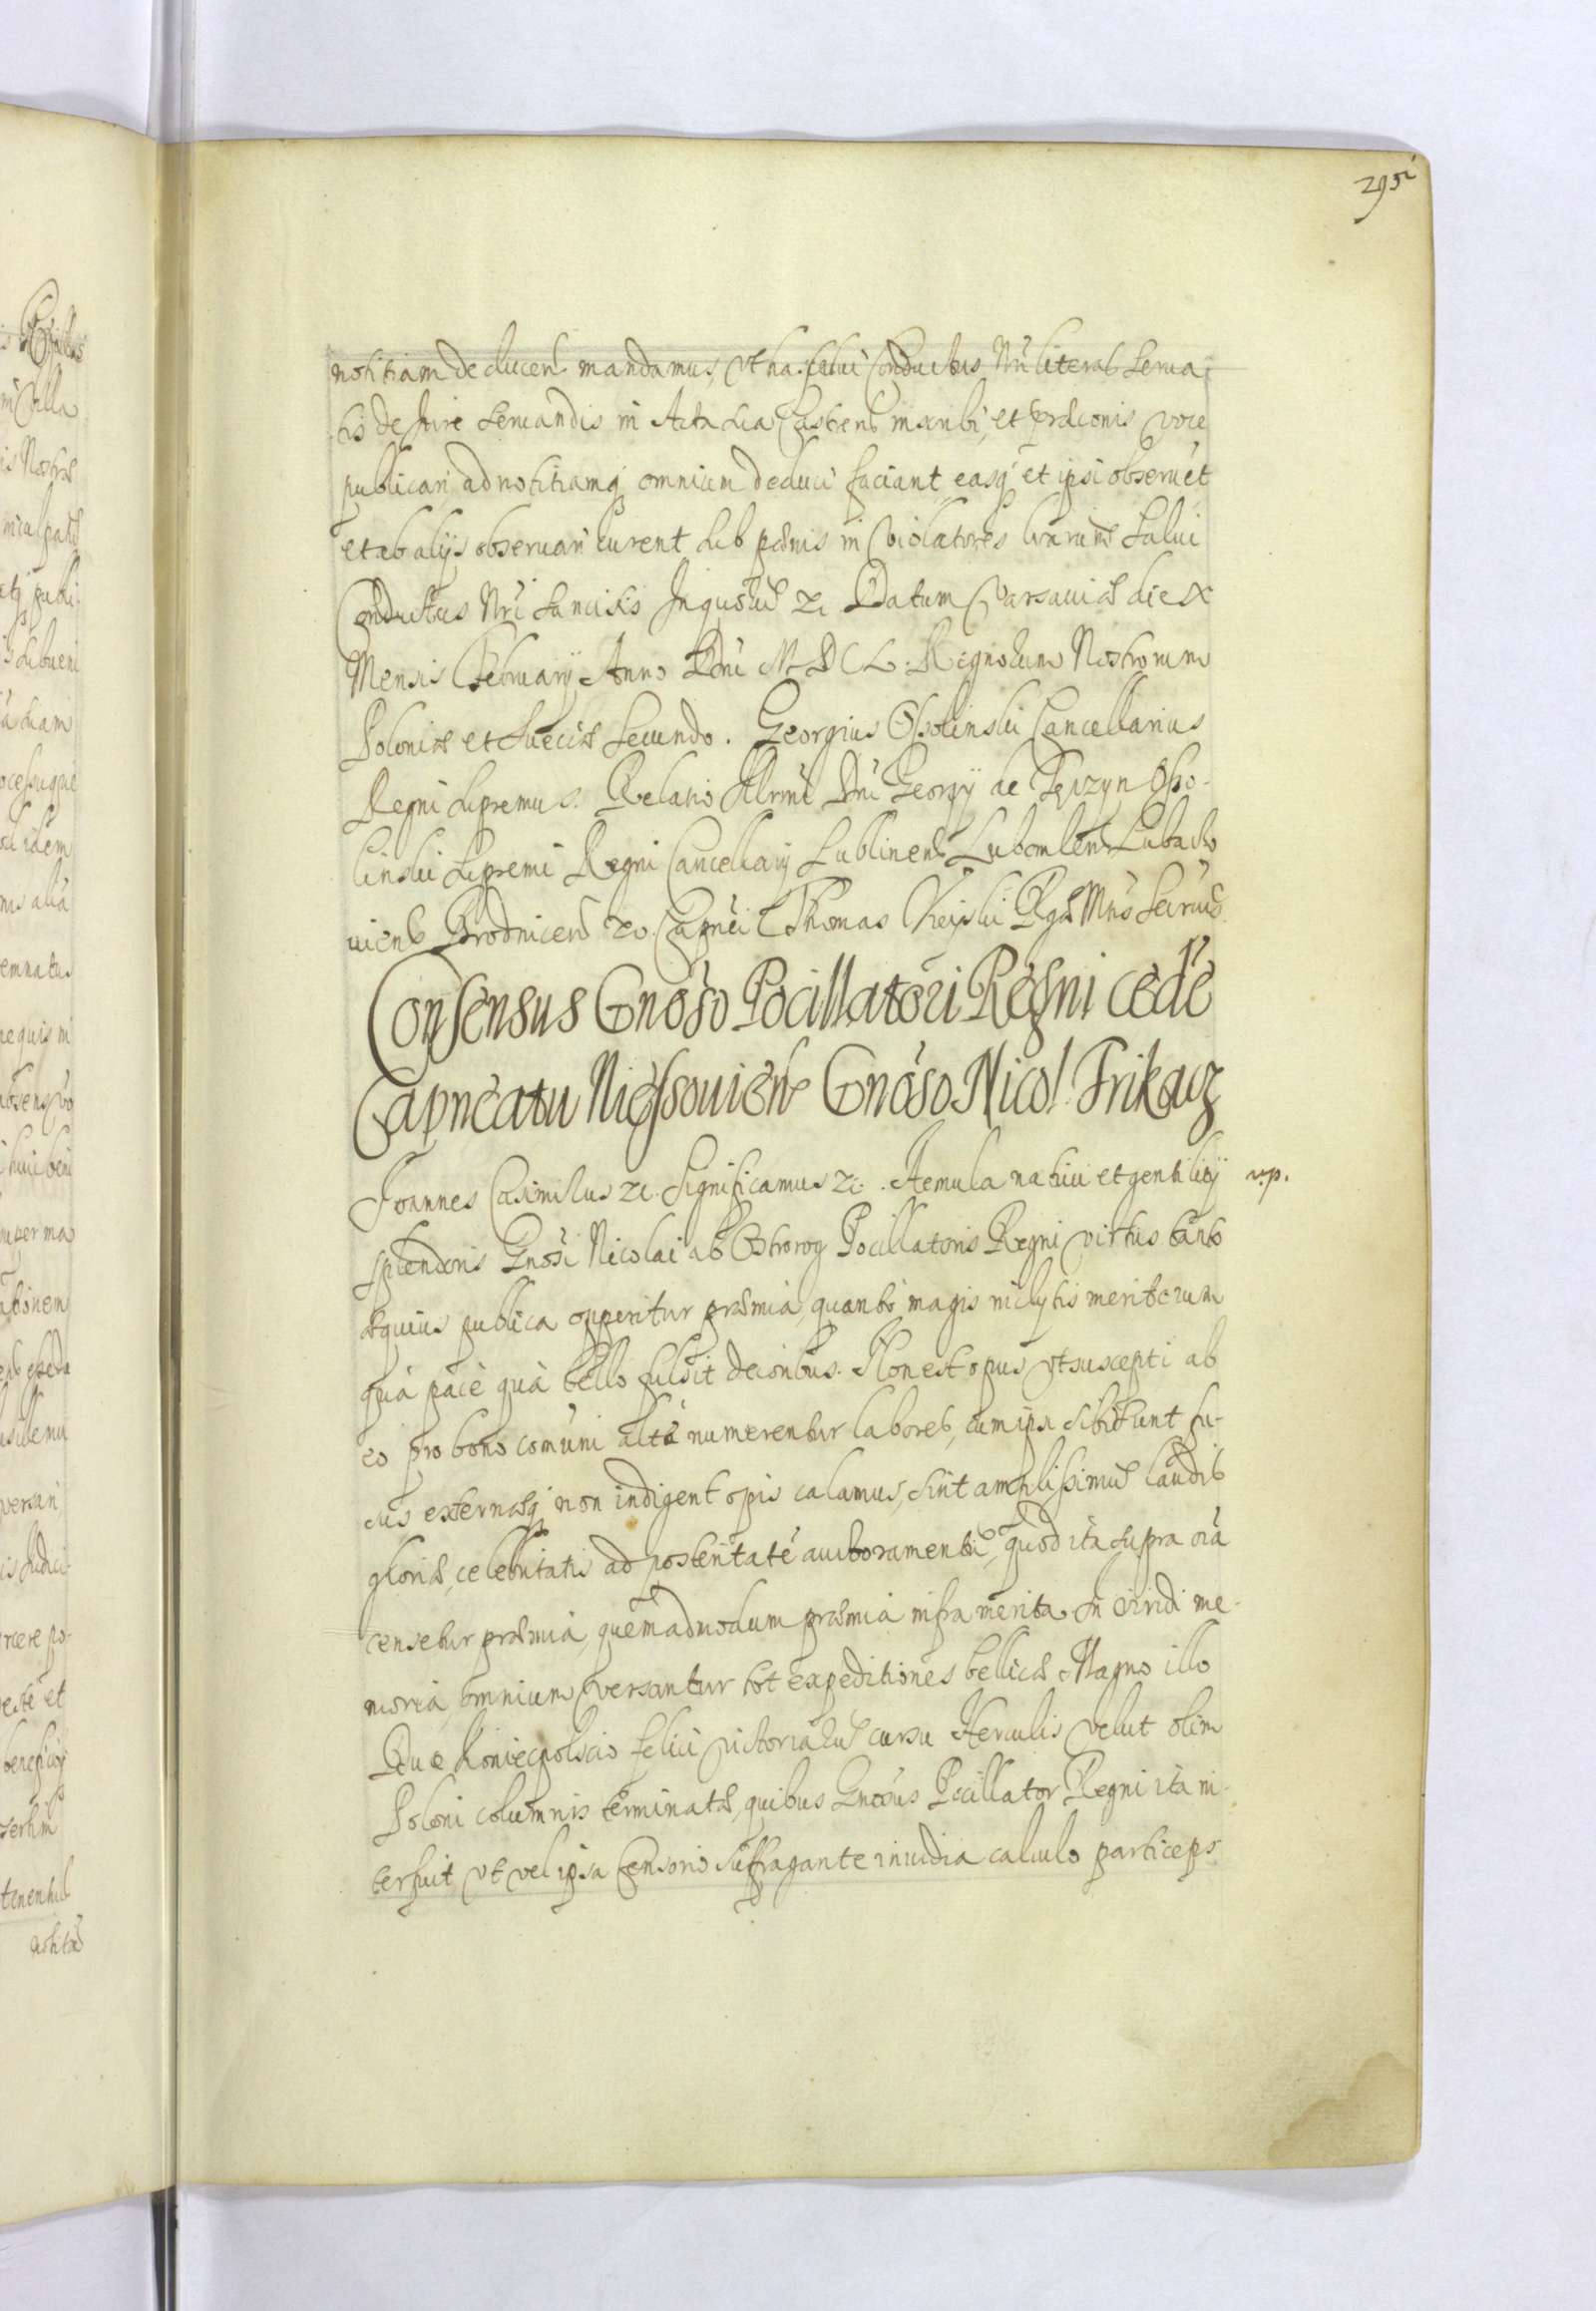 295
notitiam deducen mandamus, vt has salui Conductus Nri literas serua-
tis de Jure seruandis in Acta sua Castren inscribi, et prӕconis voce
publicari ad notitiamq omnium deduci faciant easq et ipsi obseruet
et ab alijs obseruari curent sub pœnis in violatores l̄rarum salui
Conductus Nri sancitis In quor̄ &c Datum Varsauiӕ die X
Mensis February Anno Dni MDCL. Regnorum Nostrorum
Poloniӕ et Sueciӕ Secundo. Georgius Ossolinski Cancellarius
Regni Supremus. Relatio Illrmi Dni Georgij de Tęczyn Osso-
linski Supremi Regni Cancellarij Lublinens Lubomlens Lubaczo
uiens Brodnicens &c. Capnei Thomas Vieyski Rgӕ Mtis Secrius.
Consensus Gnoso Pocillatori Regni cedē
Capneatu Niessouień Gnoso Nicol. Trikacz
Joannes Casimirus &c. Significamus &c. Aemula natiui et gentilitij
splendoris Gnosi Nicolai ab Ostrorog Pocillatoris Regni virtus tanto
ӕquius publica opperitur prӕmia, quanto magis inclytis meritorum
quà pace quà bello fulsit decoribus. Non est opus vt suscepti ab
eo pro bono comuni altē numerentur labores, cum ipsi sibi sunt fu-
cus externaq non indigent opis calamus, sint amplissimӕ laudis
gloriӕ, celebritatis ad posteritatē auctoramenta, quod ita supra oīa
censetur prӕmia, quemadmodum prӕmia infra merita. In viridi me-
moria omnium versantur tot expeditiones bellicӕ Magno illo
Duce Koniecpolscio felici victoriarum cursu Herculis velut olim
Poloni columnis terminatӕ, quibus Gnosus Pocillator Regni ita in-
terfuit, vt vel ipsa Censorio suffragante inuidia calculo particeps